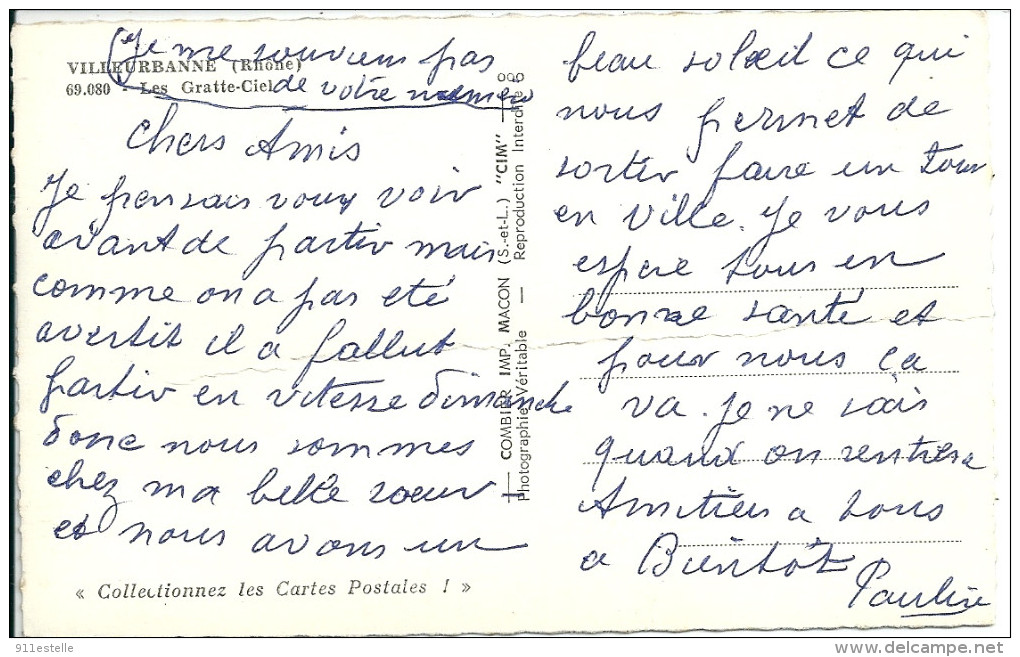 VILLEURBANNE (Rhône)
69.080 - Les Gratte-Ciel
(Je me souviens pas
de votre numero
Chers Amis
Je pensais vous voir
avant de partir mais
comme on a pas eté
avertit il a fallut
partir en vitesse dimanche
donc nous sommes
chez ma belle soeur
et nous avons un
« Collectionnez les Cartes Postales ! »
COMBIER IMP. MACON (S.-et-L.) "CIM"
Photographie Véritable — Reproduction Interdite
beau soleil ce qui
nous permet de
sortir faire un tour
en ville. Je vous
espere tous en
bonne santé et
pour nous ça
va. Je ne sais
quand on rentrera
Amitiés a tous
a Bientôt
Pauline
911estelle
delcampe.net